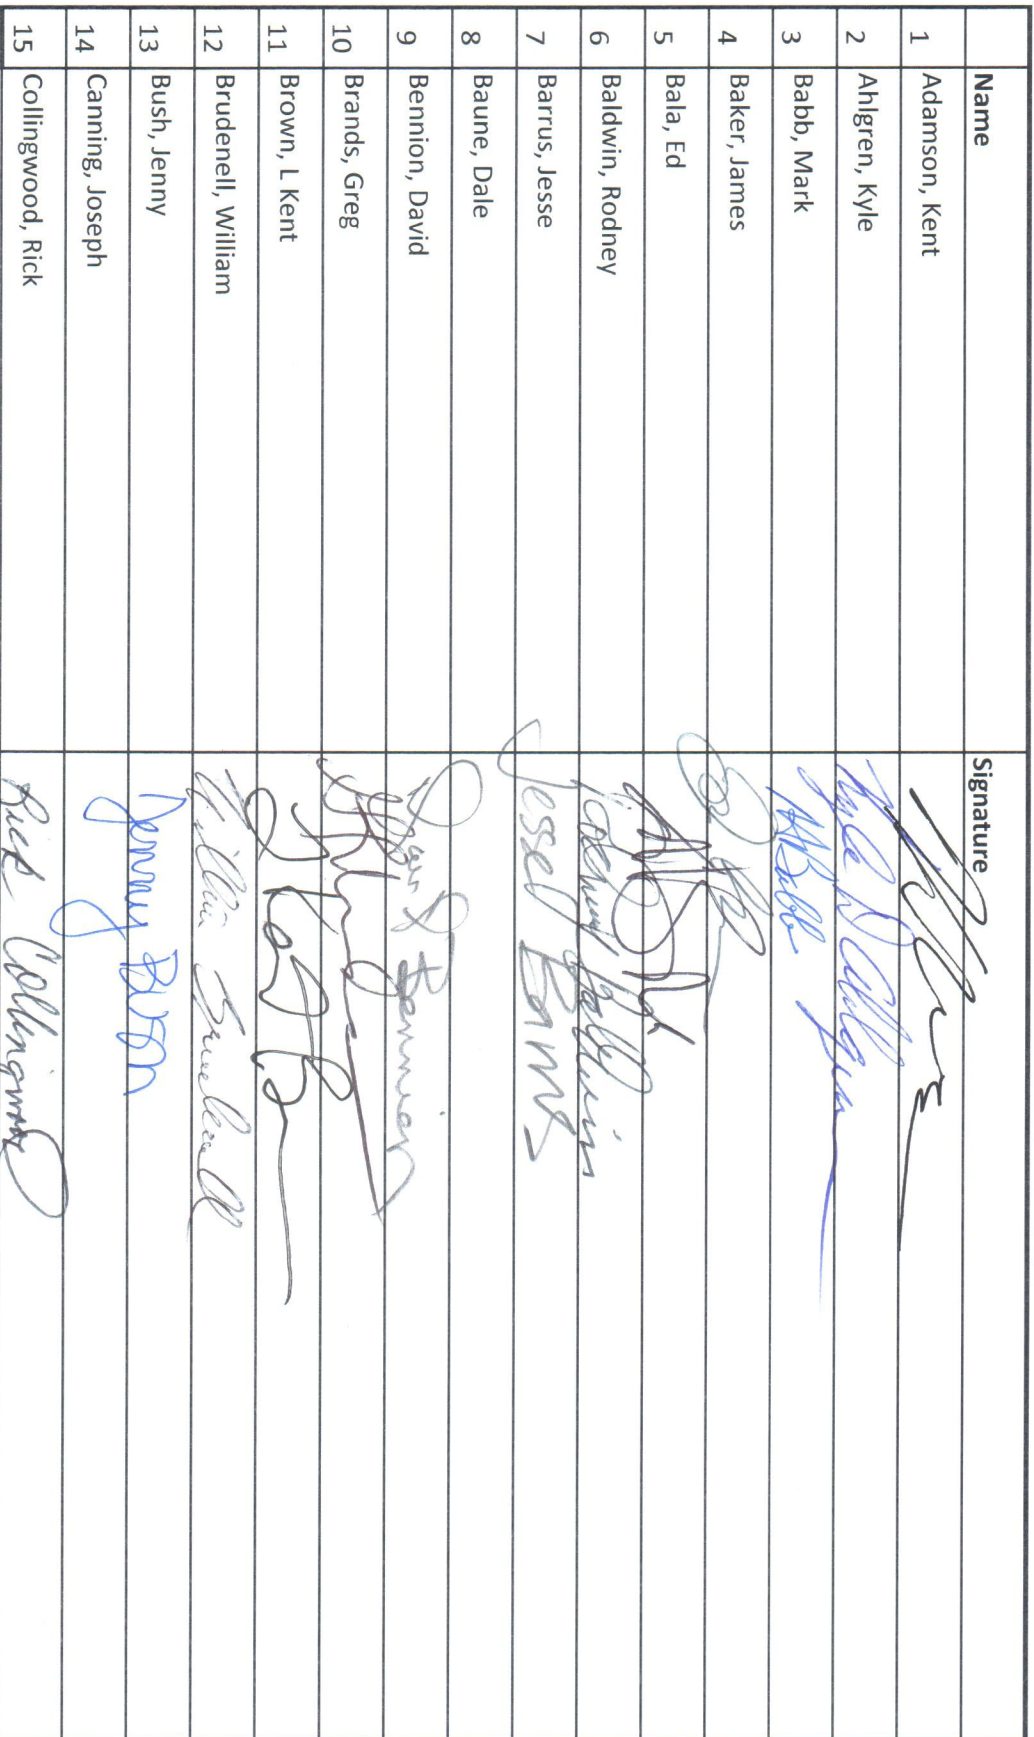 Name Signature
1 Adamson, Kent
2 Ahlgren, Kyle Kyle D Ahlgren
3 Babb, Mark M Babb
4 Baker, James
5 Bala, Ed
6 Baldwin, Rodney Rodney Baldwin
7 Barrus, Jesse Jesse Barrus
8 Baune, Dale
9 Bennion, David David S Bennion
10 Brands, Greg
11 Brown, L Kent
12 Brudenell, William William Brudenell
13 Bush, Jenny Jenny Bush
14 Canning, Joseph
15 Collingwood, Rick Rick Collingwood